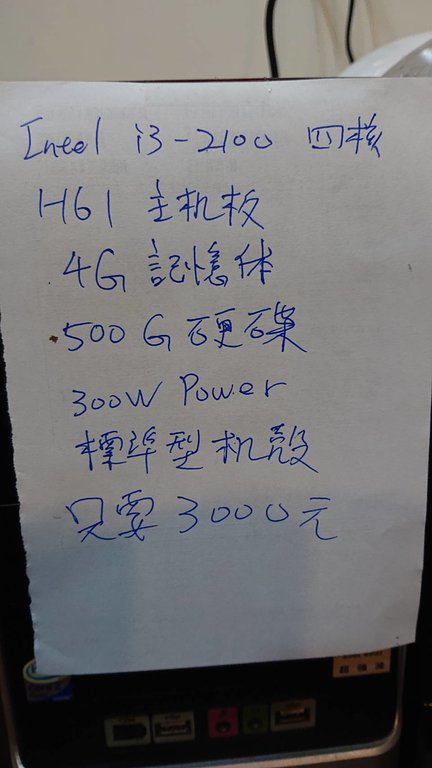 Intel i3-2100 四核
H61 主机板
4G 記憶体
500G 硬碟
300W Power
標準型机殼
只要 3000元